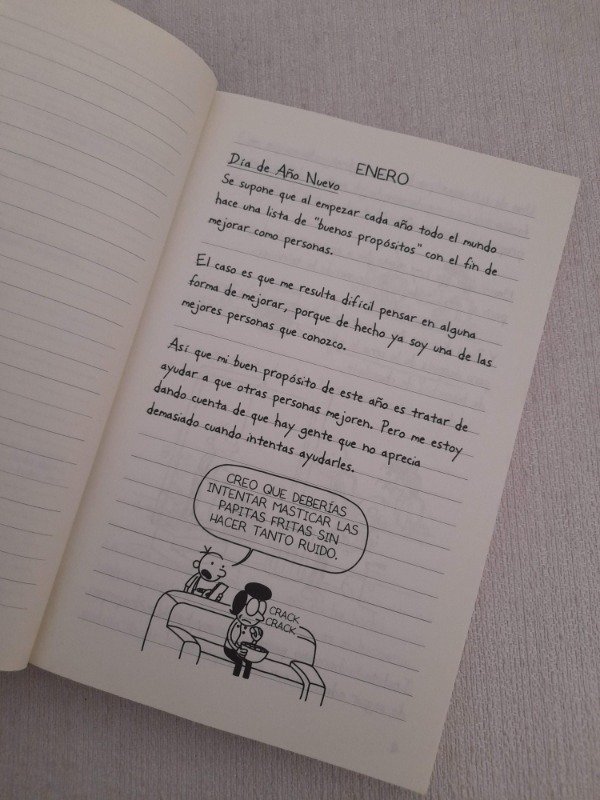 ENERO
Día de Año Nuevo
Se supone que al empezar cada año todo el mundo
hace una lista de "buenos propósitos" con el fin de
mejorar como personas.
El caso es que me resulta difícil pensar en alguna
forma de mejorar, porque de hecho ya soy una de las
mejores personas que conozco.
Así que mi buen propósito de este año es tratar de
ayudar a que otras personas mejoren. Pero me estoy
dando cuenta de que hay gente que no aprecia
demasiado cuando intentas ayudarles.
CREO QUE DEBERÍAS
INTENTAR MASTICAR LAS
PAPITAS FRITAS SIN
HACER TANTO RUIDO.
CRACK
CRACK